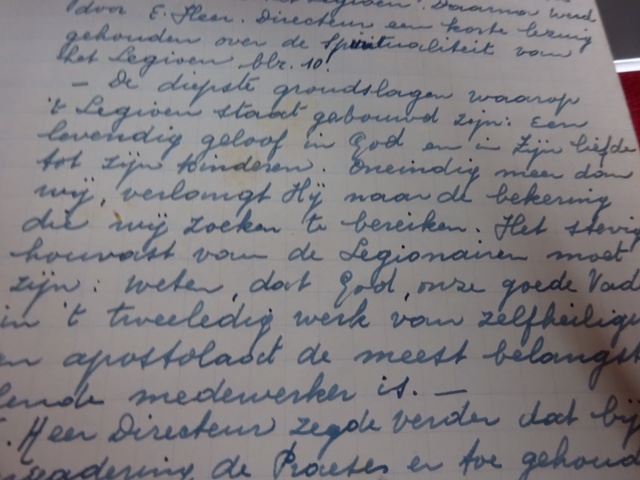 Legioen. Daarna werd
door E. Heer. Directeur een korte lezing
gehouden over de Spiritualiteit van
het Legioen blz. 10.
– De diepste grondslagen waarop
't Legioen staat gebouwd zijn: Een
levendig geloof in God en in Zijn liefde
tot Zijn kinderen. Oneindig meer dan
wij, verlangt Hij naar de bekering
die wij zoeken te bereiken. Het stevig
houvast van de Legionairen moet
zijn: weten, dat God, onze goede Vad
in 't tweeledig werk van zelfheiligi
en apostolaat de meest belangst
lende medewerker is. –
. Heer Directeur zegde verder dat bij
gadering de Praeses er toe gehoud